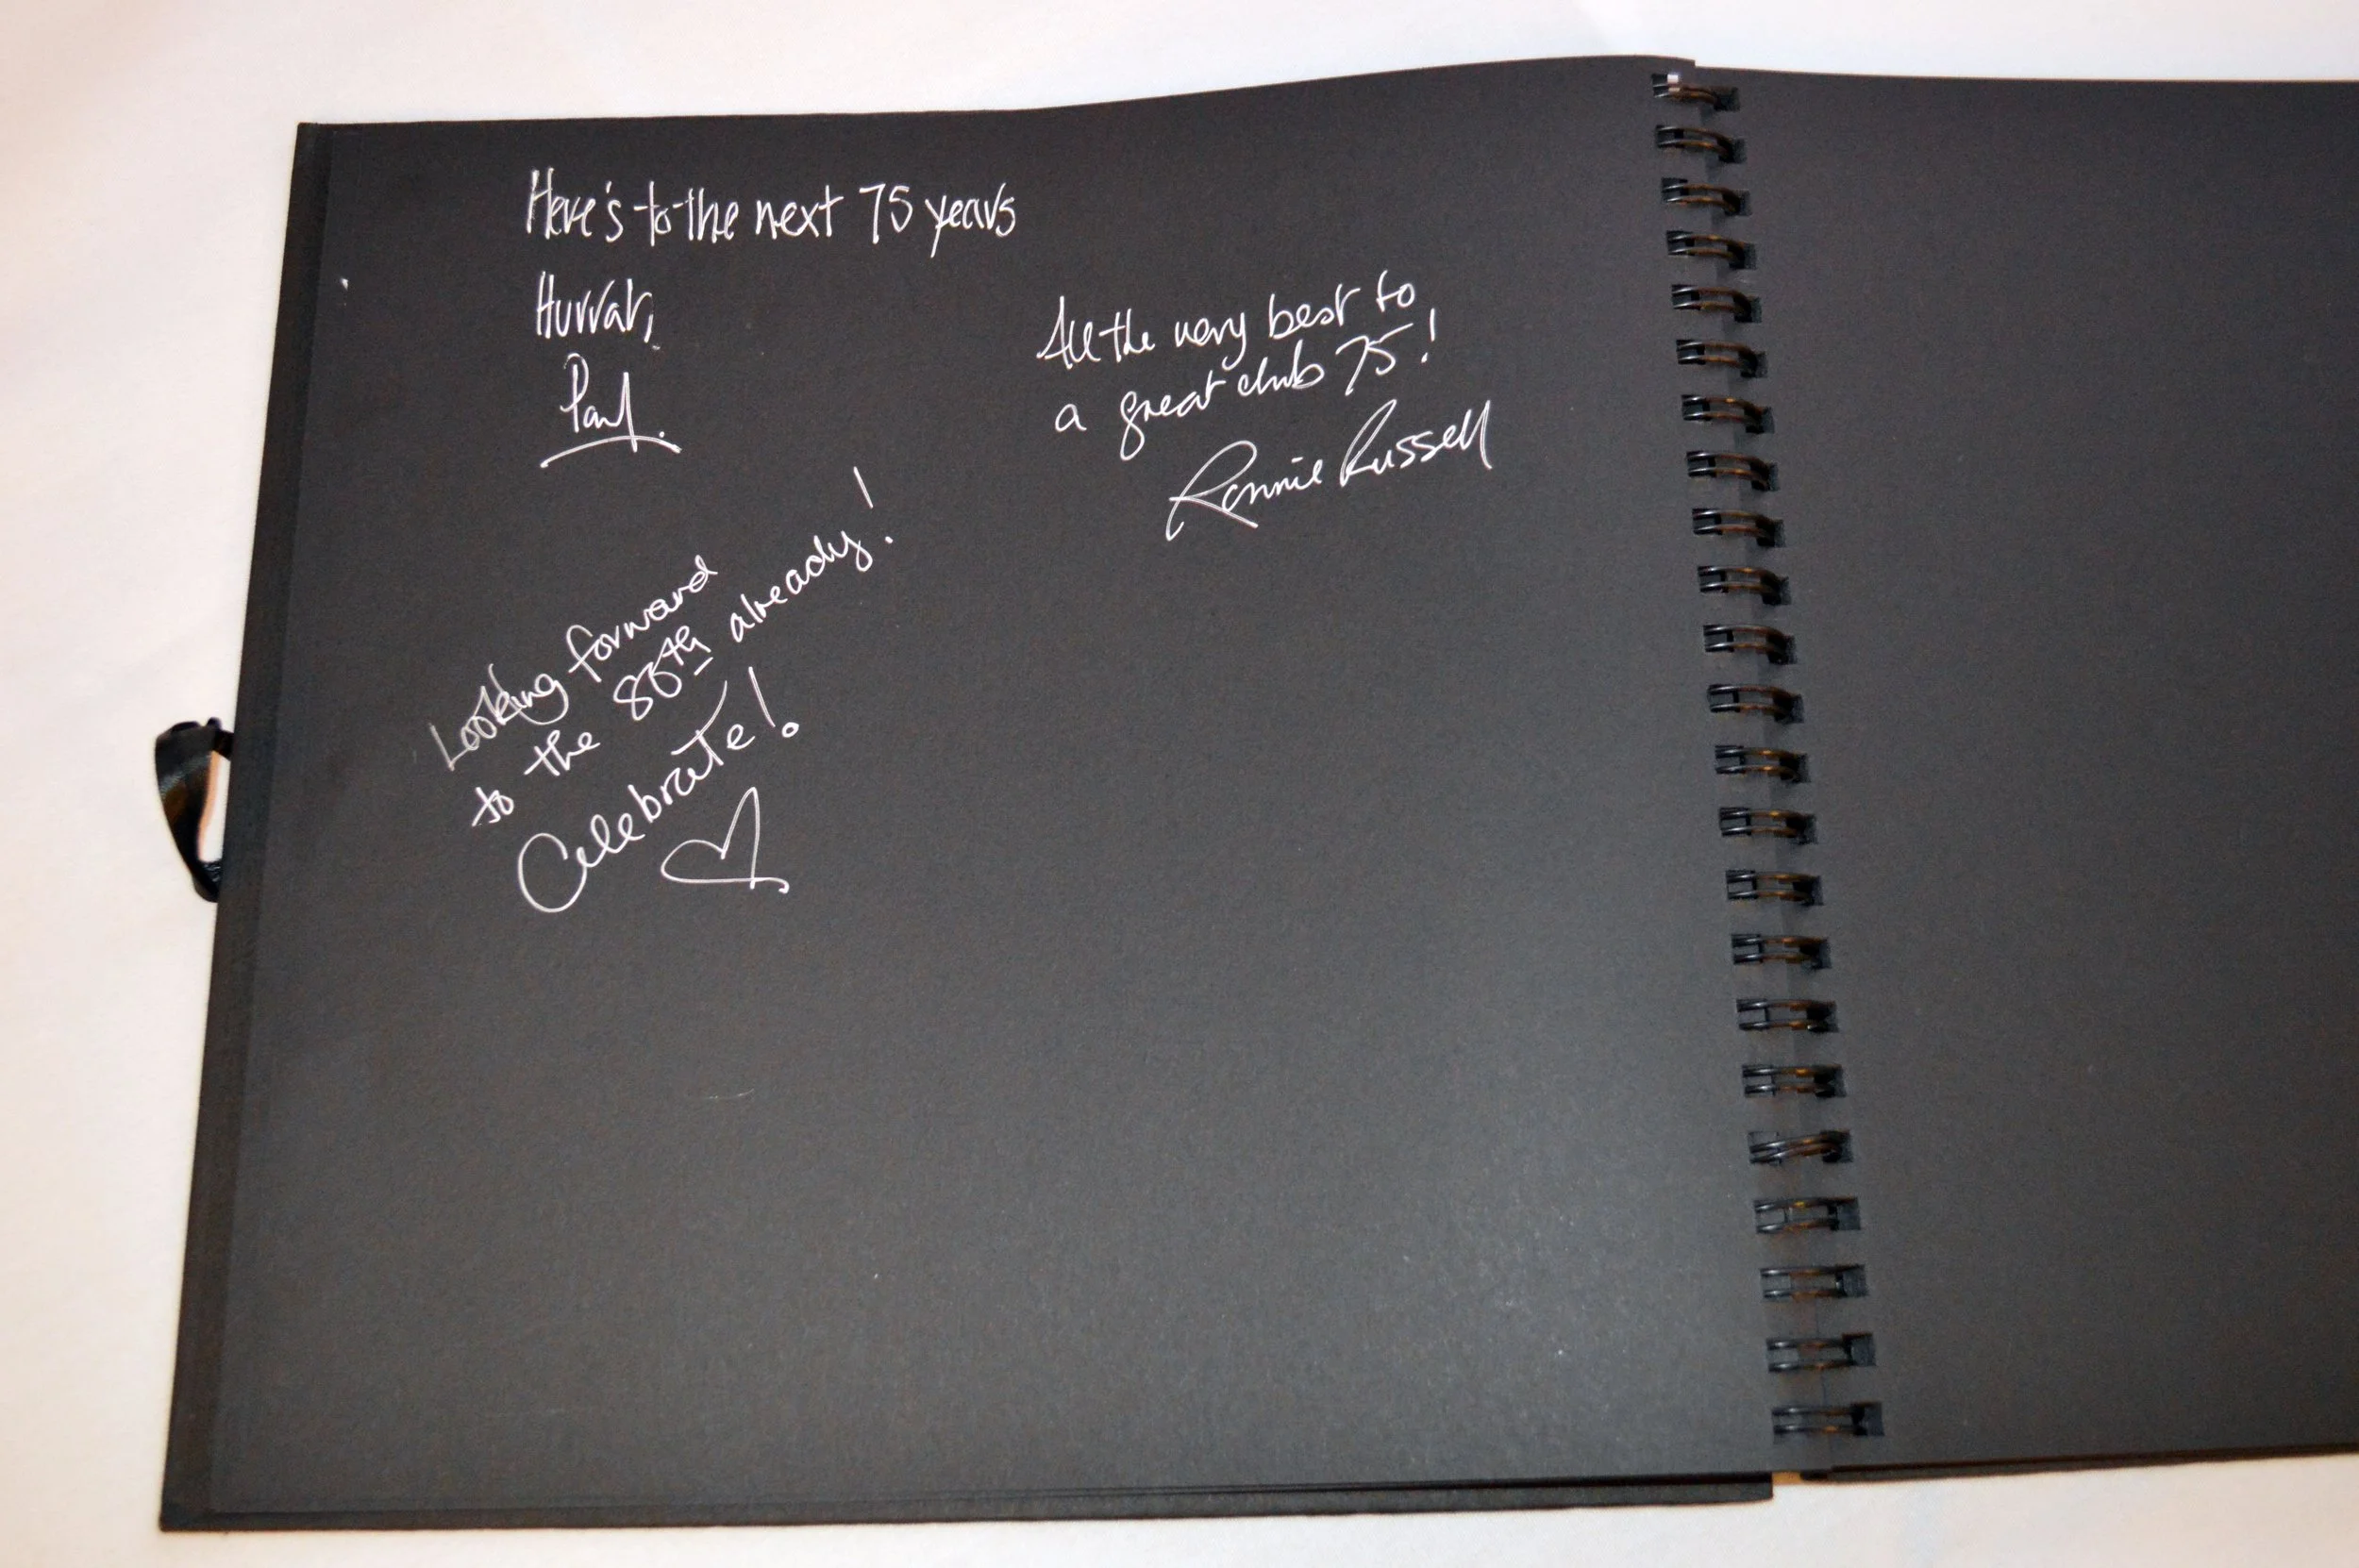 Here's to the next 75 years
Hurrah,
Paul.
All the very best to
a great club 75!
Ronnie Russell
Looking forward
to the 80th already!
Celebrate!